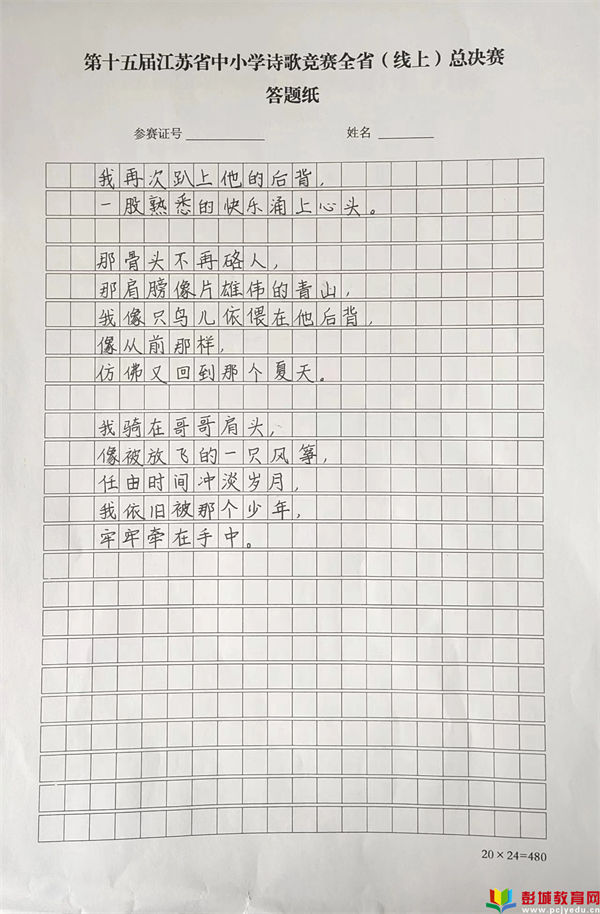 第十五届江苏省中小学诗歌竞赛全省（线上）总决赛
答题纸
参赛证号 姓名
我再次趴上他的后背，
一股熟悉的快乐涌上心头。
那骨头不再硌人，
那肩膀像片雄伟的青山，
我像只鸟儿依偎在他后背，
像从前那样，
仿佛又回到那个夏天。
我骑在哥哥肩头，
像被放飞的一只风筝，
任由时间冲淡岁月，
我依旧被那个少年，
牢牢牵在手中。
20×24=480
彭城教育网
www.pcjyedu.cn